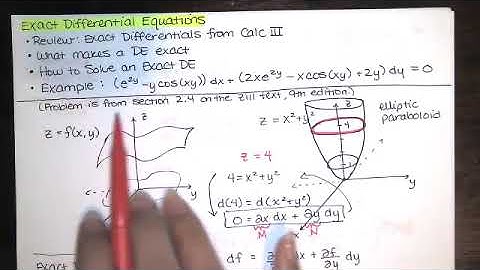 Exact Differential Equations
• Review: Exact Differentials from Calc III
• What makes a DE exact
• How to Solve an Exact DE
• Example: (e^2y - y cos(xy)) dx + (2xe^2y - x cos(xy) + 2y) dy = 0
(Problem is from section 2.4 on the Zill text, 9th edition)
z = f(x,y)
z
y
z = x²+y²
z
4
1
elliptic
paraboloid
z = 4
4 = x²+y²
d(4) = d(x²+y²)
0 = 2x dx + 2y dy
M N
x
y
Exact
df = dx + ∂f/∂y dy